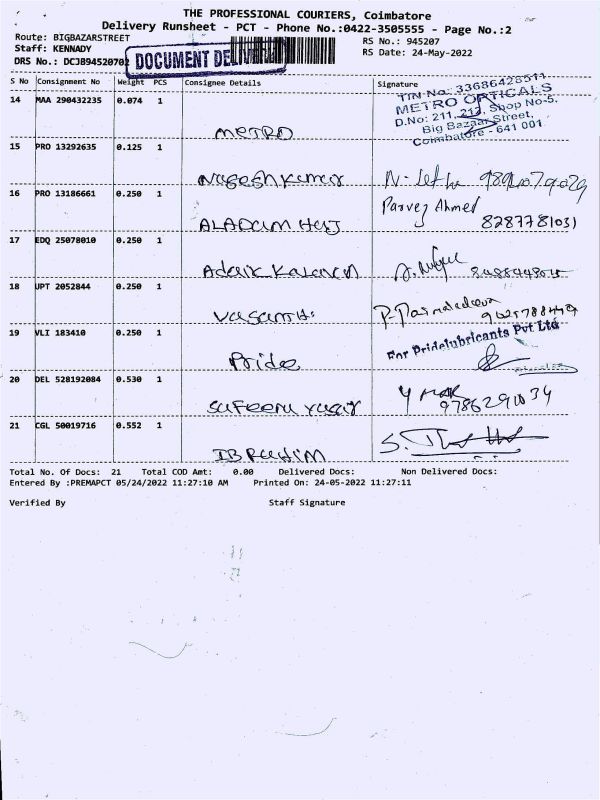 THE PROFESSIONAL COURIERS, Coimbatore
Delivery Runsheet - PCT - Phone No.:0422-3505555 - Page No.:2
Route: BIGBAZARSTREET
RS No.: 945207
Staff: KENNADY
RS Date: 24-May-2022
DRS No.: DCJB9452070
DOCUMENT DELIVERED
S No Consignment No Weight PCS Consignee Details Signature
TIN No: 33686428511
METRO OPTICALS
D.No: 211, 212, Shop No-5,
Big Bazaar Street,
Coimbatore - 641 001
14 MAA 290432235 0.074 1
METRO
15 PRO 13292635 0.125 1
Nagesh Kumar
16 PRO 13186661 0.250 1
Parvez Ahmed
8287781031
17 EDQ 25078010 0.250 1
18 UPT 2052844 0.250 1
19 VLI 183410 0.250 1
For Pridelubricants Pvt Ltd
Pride
20 DEL 528192084 0.530 1
21 CGL 50019716 0.552 1
IBRAHIM
Total No. Of Docs: 21 Total COD Amt: 0.00 Delivered Docs: Non Delivered Docs:
Entered By :PREMAPCT 05/24/2022 11:27:10 AM Printed On: 24-05-2022 11:27:11
Verified By Staff Signature